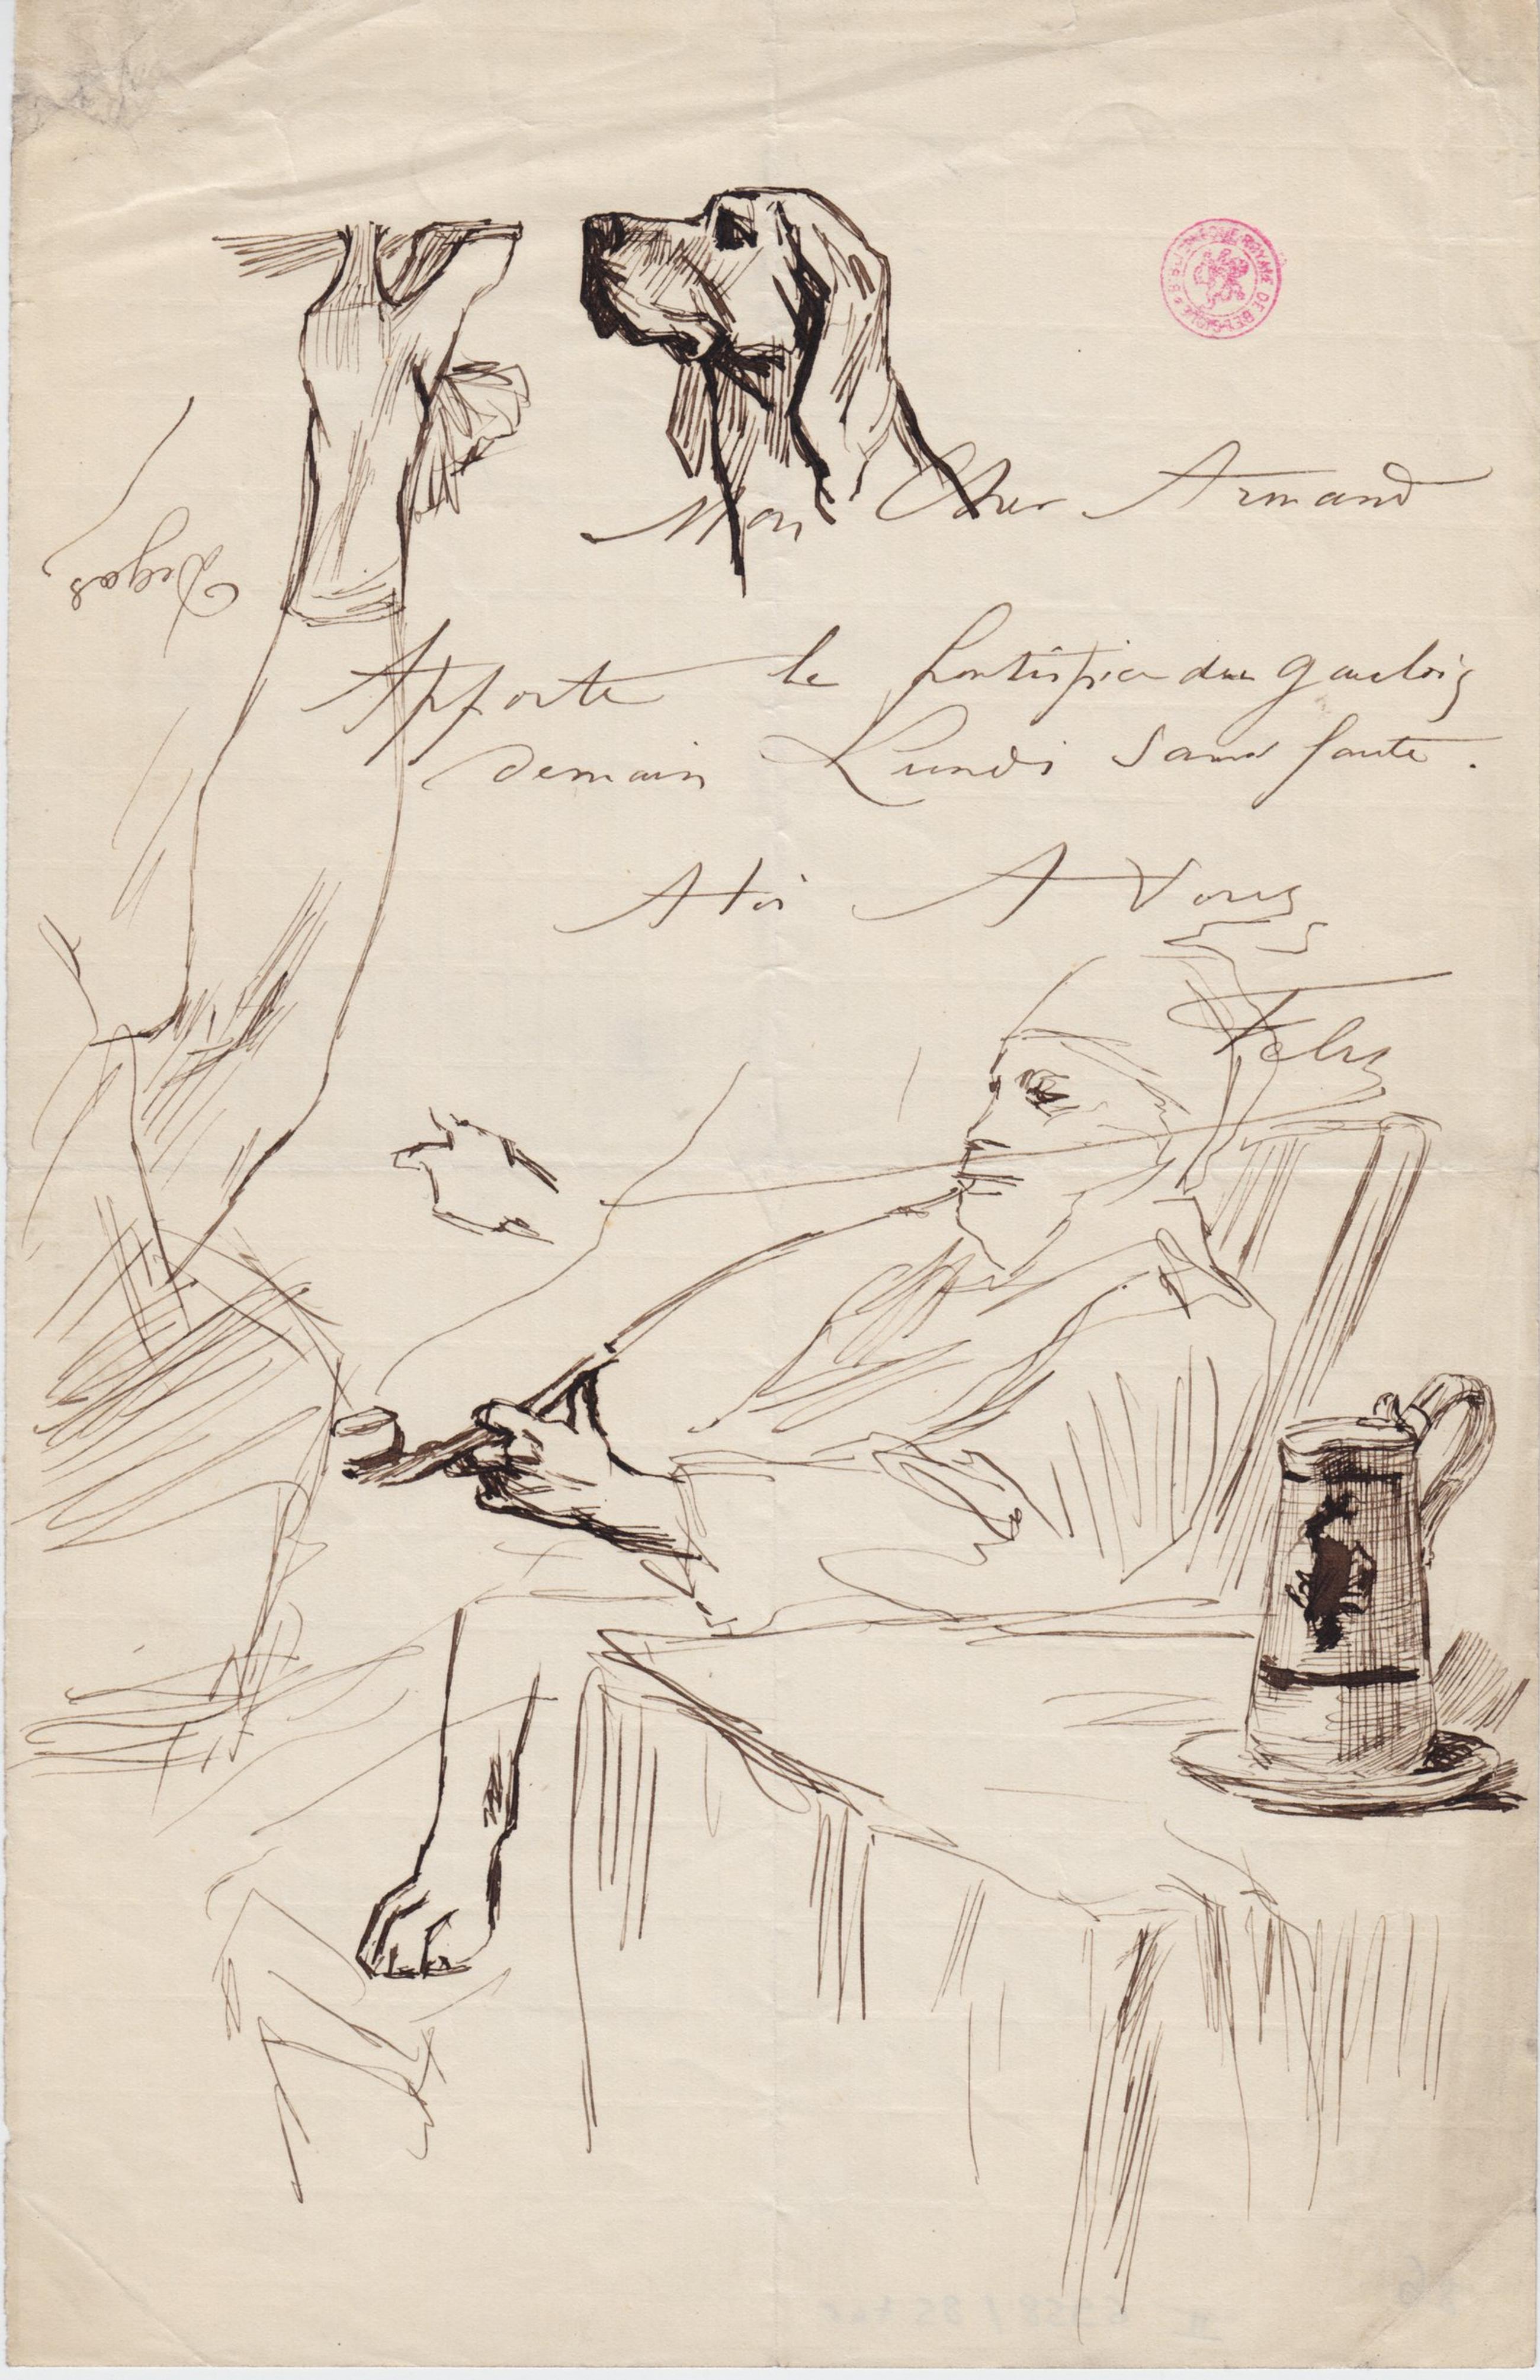 Mon Cher Armand
Apporte le frontispice du gaulois
demain Lundi sans faute.
A toi A Vous
Fély
Degas
BIBLIOTHÈQUE ROYALE DE BELGIQUE